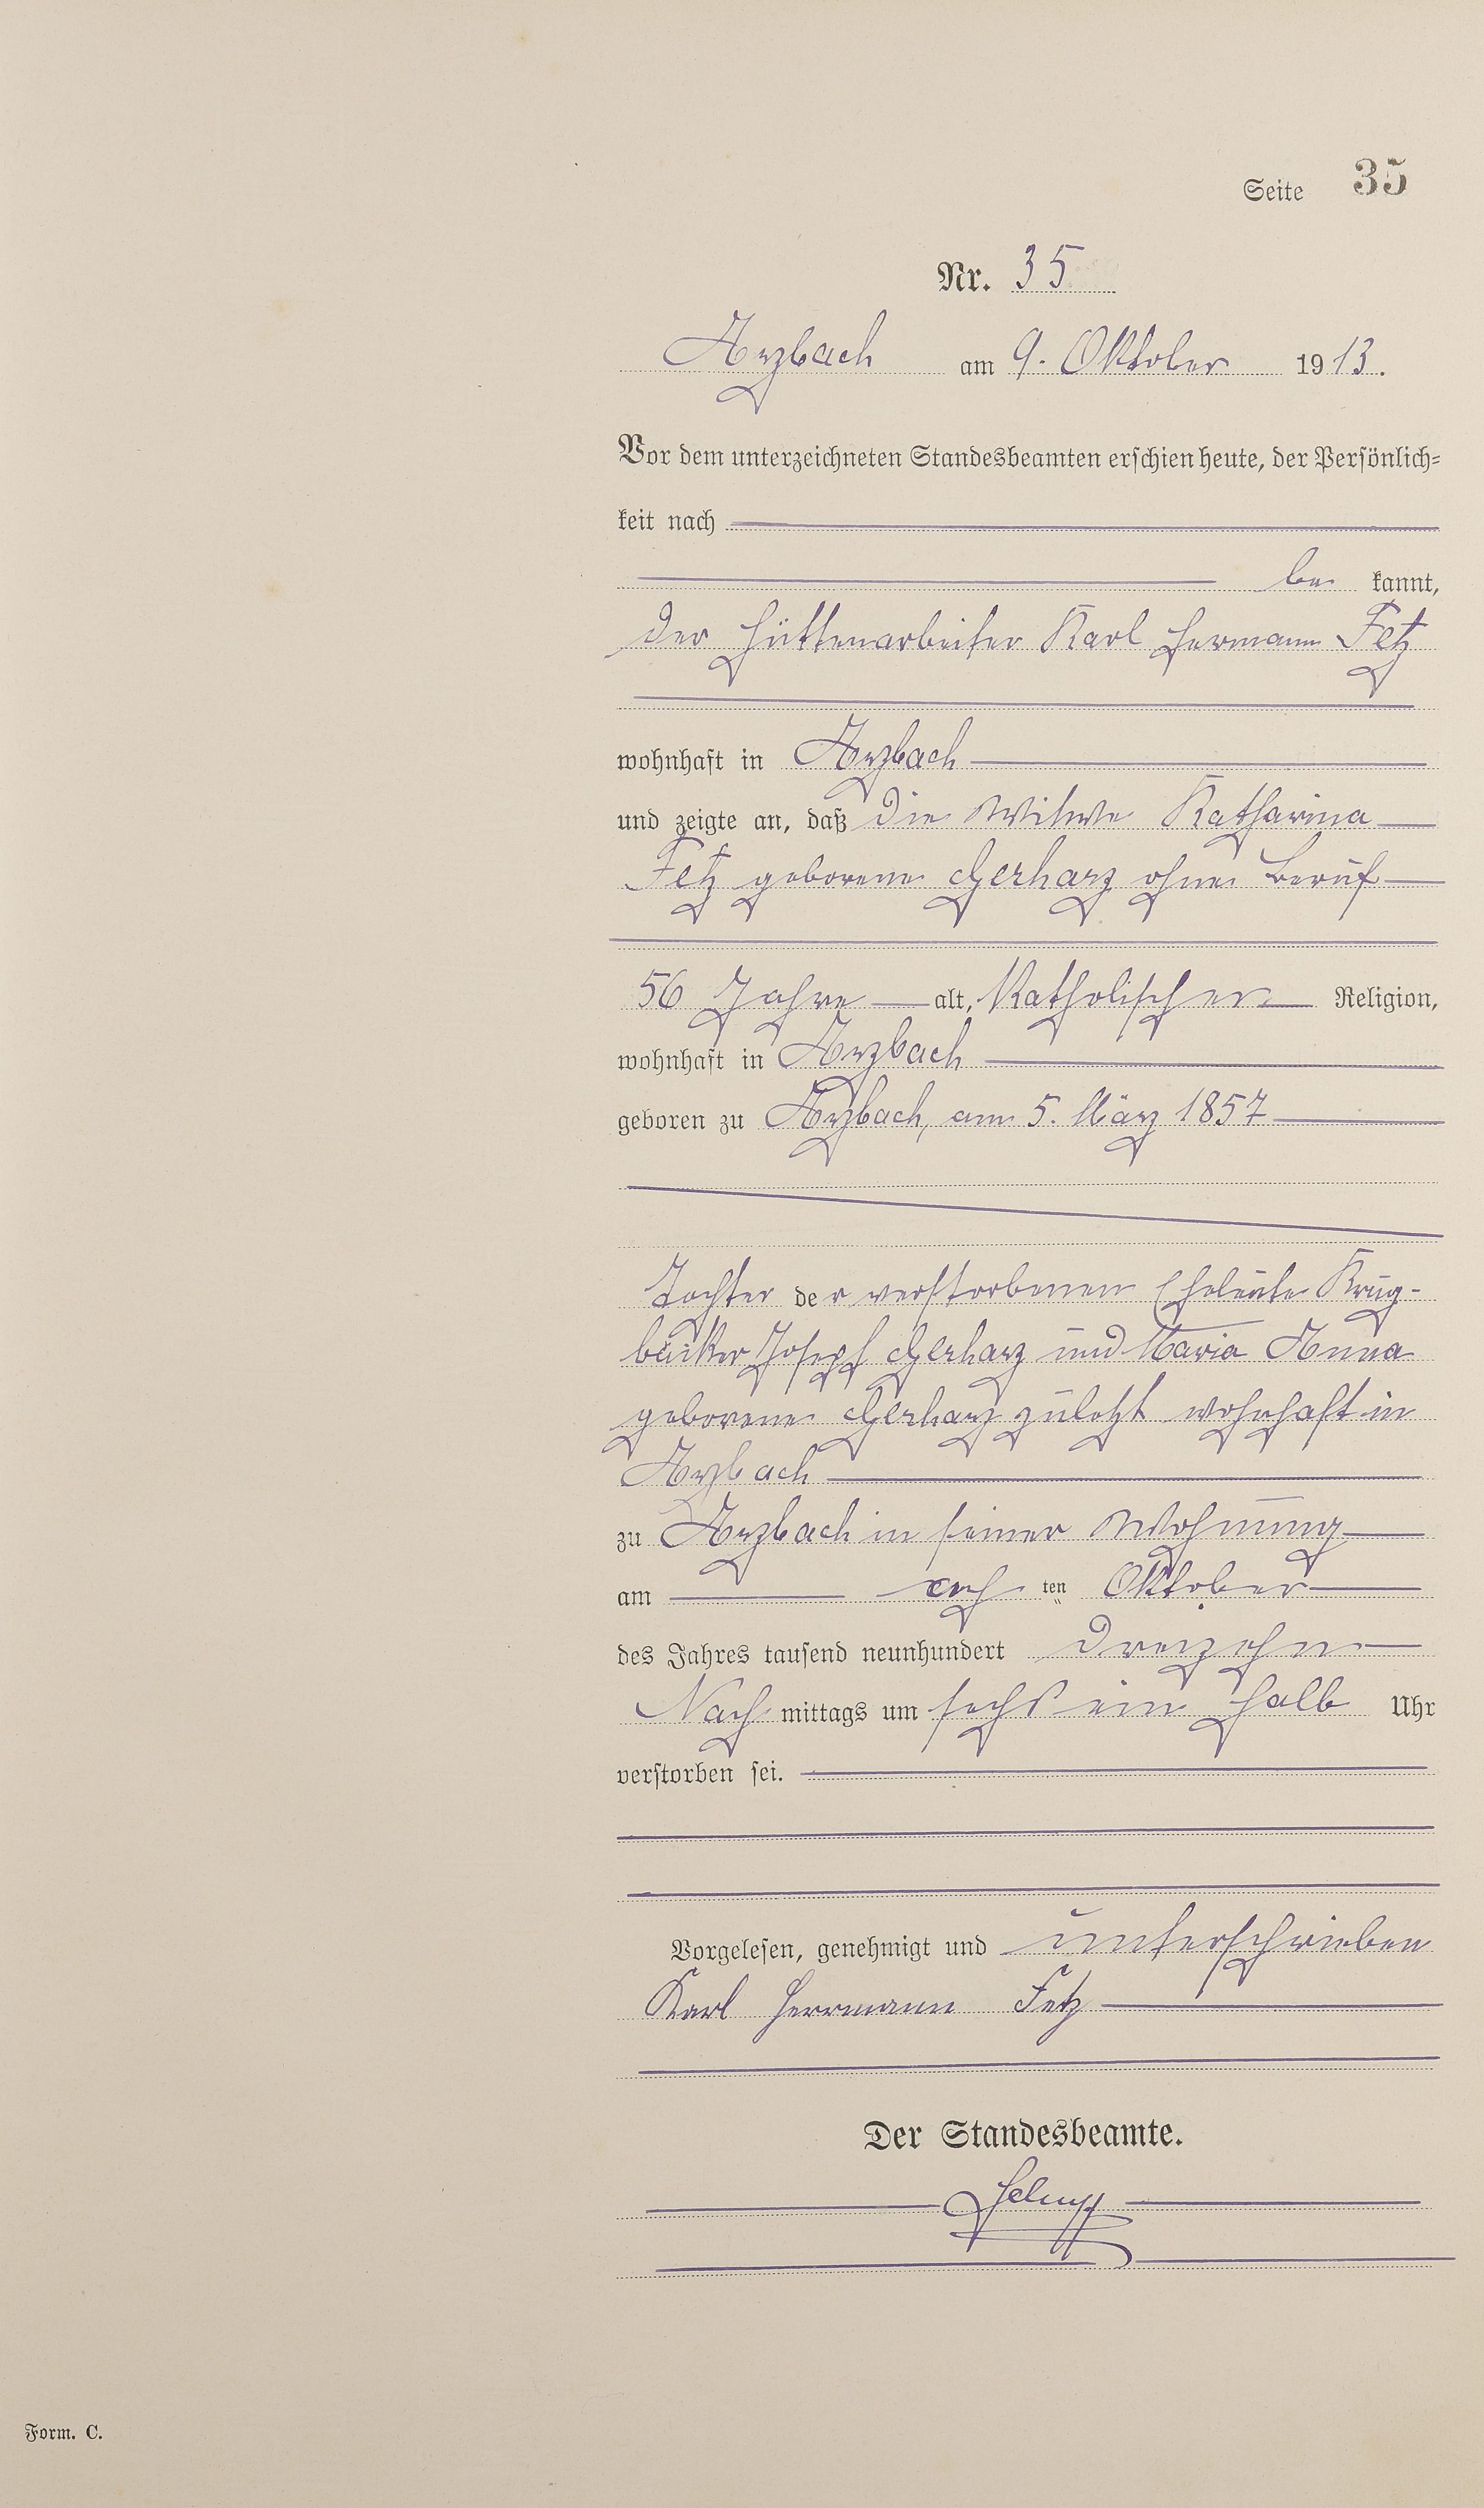 Seite 35
Nr. 35
Arzbach am 9. Oktober 1913.
Vor dem unterzeichneten Standesbeamten erschien heute, der Persönlich=
keit nach
be kannt,
der Hüttenarbeiter Karl Hermann Fetz
wohnhaft in Arzbach
und zeigte an, daß die Witwe Katharina
Fetz geborene Gerharz ohne Beruf
56 Jahre alt, Katholischer Religion,
wohnhaft in Arzbach
geboren zu Arzbach, am 5. März 1857
Tochter der verstorbenen Eheleute Krug-
bäcker Joseph Gerharz und Maria Anna
geborene Gerharz zuletzt wohnhaft in
Arzbach
zu Arzbach in seiner Wohnung
am ach ten Oktober
des Jahres tausend neunhundert dreizehn
Nach mittags um sechs ein halb Uhr
verstorben sei.
Vorgelesen, genehmigt und unterschrieben
Karl Herrmann Fetz
Der Standesbeamte.
Form. C.